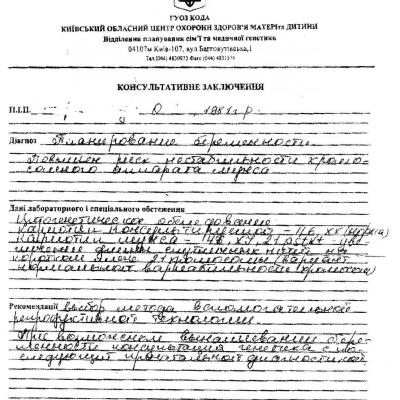 ГУОЗ КОДА
КИЇВСЬКИЙ ОБЛАСНИЙ ЦЕНТР ОХОРОНИ ЗДОРОВ'Я МАТЕРІ та ДИТИНИ
Відділення планування сім'ї та медичної генетики
04107м Київ-107, вул Багговутівська,1
КОНСУЛЬТАТИВНЕ ЗАКЛЮЧЕННЯ
П.І.П. 1981 г.р.
Діагноз Планирование беременности.
Повышен риск нестабильности хромо-
сомного аппарата мужа
Дані лабораторного і спеціального обстеження
Цитогенетическое обследование
кариотип консультируемой - 46, XX (норма)
кариотип мужа - 46, XY, 21 pstk+ - уве-
личение длины спутничных нитей на
коротком плече 21 хромосомы (вариант
нормальной вариабельности хромосом)
Рекомендації выбор метода вспомогательной
репродуктивной технологии.
При возможном вынашивании бере-
менности консультация генетика с по-
следующей пренатальной диагностикой.